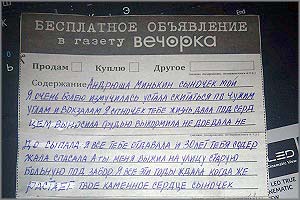 БЕСПЛАТНОЕ ОБЪЯВЛЕНИЕ
в газету вечорка
Продам Куплю Другое
Содержание Андрюша Минькин сыночек мой
Я очень болею измучилась устала скитаться по чужим
углам и вокзалам Я сыночек тебе жизнь дала под серд
цем выносила грудью выкормила не доедала не
до сыпала Я все тебе отдавала и 30 лет тебя содер
жала спасала А ты меня выжил на улицу старую
больную под забор Я все эти годы ждала когда же
растает твое каменное сердце сыночек
LED
LED TRUE